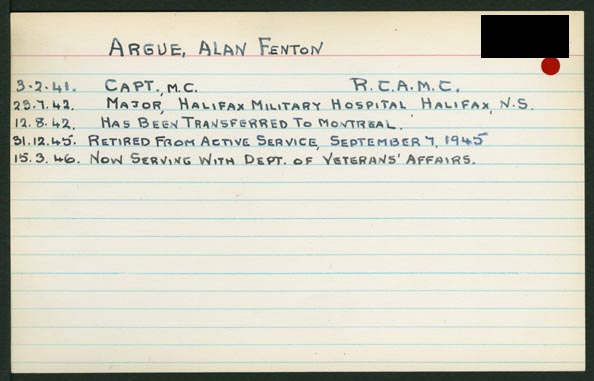 ARGUE, ALAN FENTON
3-2-41. CAPT., M.C. R.C.A.M.C.
23.7.42. MAJOR, HALIFAX MILITARY HOSPITAL HALIFAX, N.S.
12.8.42. HAS BEEN TRANSFERRED TO MONTREAL.
31.12.45. RETIRED FROM ACTIVE SERVICE, SEPTEMBER 7, 1945
15.3.46. NOW SERVING WITH DEPT. OF VETERANS' AFFAIRS.